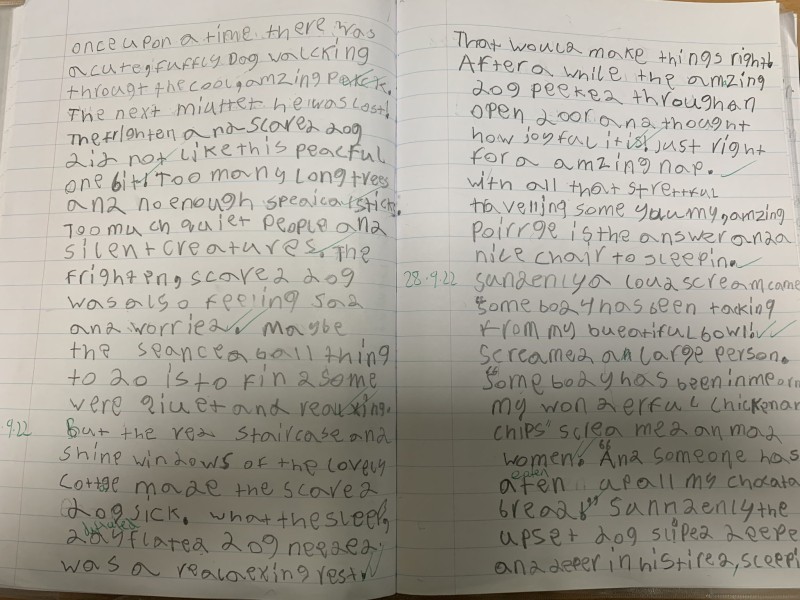 once upon a time there was
a cute, fuffly Dog valcking
throught the cool, gamzing
The next miutter he was lost!
The frighten and scared dog
did not like this peacful
one bit! Too many long trees
and no enough speaical sticks.
Too much quiet people and
silent creatures. The
frighten, scared dog
was also feeling sad
and worried. Maybe
the seanceaball thing
to do is to find some
were qiuet and reauxing.
9.22 But the red staircase and
shine windows of the lovely
cottge made the scared
dog sick. what the sleep,
dayflated dog needed
was a realaexing rest
That would make things right
After a while the amzing
dog peeked through an
open door and thought
how joyful it is! just right
for a amzing nap.
with all that stretful
tavelling some yuumy, amzing
poirrge is the answer and a
nice chair to sleep in.
28.9.22 sundenly a loud scream came
"some body has been tacking
from my bueatiful bowl!"
screamed an large person.
"some body has been in me
my wonderful chicken an
chips" sclea med an mad
women. "And someone has
eaten
afen up all my chocata
bread!" sunndenly the
upset dog sliped deepe
and deper in his tired, sleepi